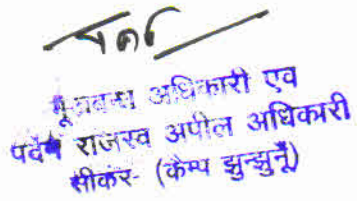 भूप्रबन्ध अधिकारी एव
पदेन राजस्व अपील अधिकारी
सीकर- (कैम्प झुन्झुनूँ)